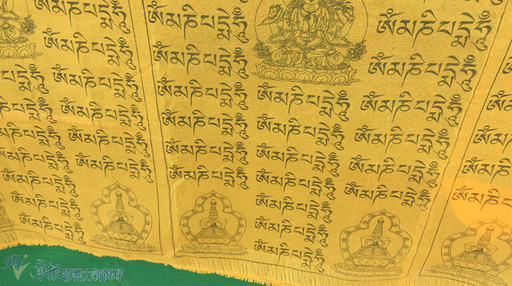 ཨོཾ་མ་ཎི་པདྨེ་ཧཱུྃ
ཨོཾ་མ་ཎི་པདྨེ་ཧཱུྃ
ཨོཾ་མ་ཎི་པདྨེ་ཧཱུྃ
ཨོཾ་མ་ཎི་པདྨེ་ཧཱུྃ
ཨོཾ་མ་ཎི་པདྨེ་ཧཱུྃ
ཨོཾ་མ་ཎི་པདྨེ་ཧཱུྃ
ཨོཾ་མ་ཎི་པདྨེ་ཧཱུྃ
ཨོཾ་མ་ཎི་པདྨེ་ཧཱུྃ
ཨོཾ་མ་ཎི་པདྨེ་ཧཱུྃ
ཨོཾ་མ་ཎི་པདྨེ་ཧཱུྃ
ཨོཾ་མ་ཎི་པདྨེ་ཧཱུྃ
ཨོཾ་མ་ཎི་པདྨེ་ཧཱུྃ
ཨོཾ་མ་ཎི་པདྨེ་ཧཱུྃ
ཨོཾ་མ་ཎི་པདྨེ་ཧཱུྃ
ཨོཾ་མ་ཎི་པདྨེ་ཧཱུྃ
ཨོཾ་མ་ཎི་པདྨེ་ཧཱུྃ
ཨོཾ་མ་ཎི་པདྨེ་ཧཱུྃ
ཨོཾ་མ་ཎི་པདྨེ་ཧཱུྃ
ཨོཾ་མ་ཎི་པདྨེ་ཧཱུྃ
ཨོཾ་མ་ཎི་པདྨེ་ཧཱུྃ
ཨོཾ་མ་ཎི་པདྨེ་ཧཱུྃ
ཨོཾ་མ་ཎི་པདྨེ་ཧཱུྃ
ཨོཾ་མ་ཎི་པདྨེ་ཧཱུྃ
ཨོཾ་མ་ཎི་པདྨེ་ཧཱུྃ
ཨོཾ་མ་ཎི་པདྨེ་ཧཱུྃ
ཨོཾ་མ་ཎི་པདྨེ་ཧཱུྃ
ཨོཾ་མ་ཎི་པདྨེ་ཧཱུྃ
ཨོཾ་མ་ཎི་པདྨེ་ཧཱུྃ
ཨོཾ་མ་ཎི་པདྨེ་ཧཱུྃ
ཨོཾ་མ་ཎི་པདྨེ་ཧཱུྃ